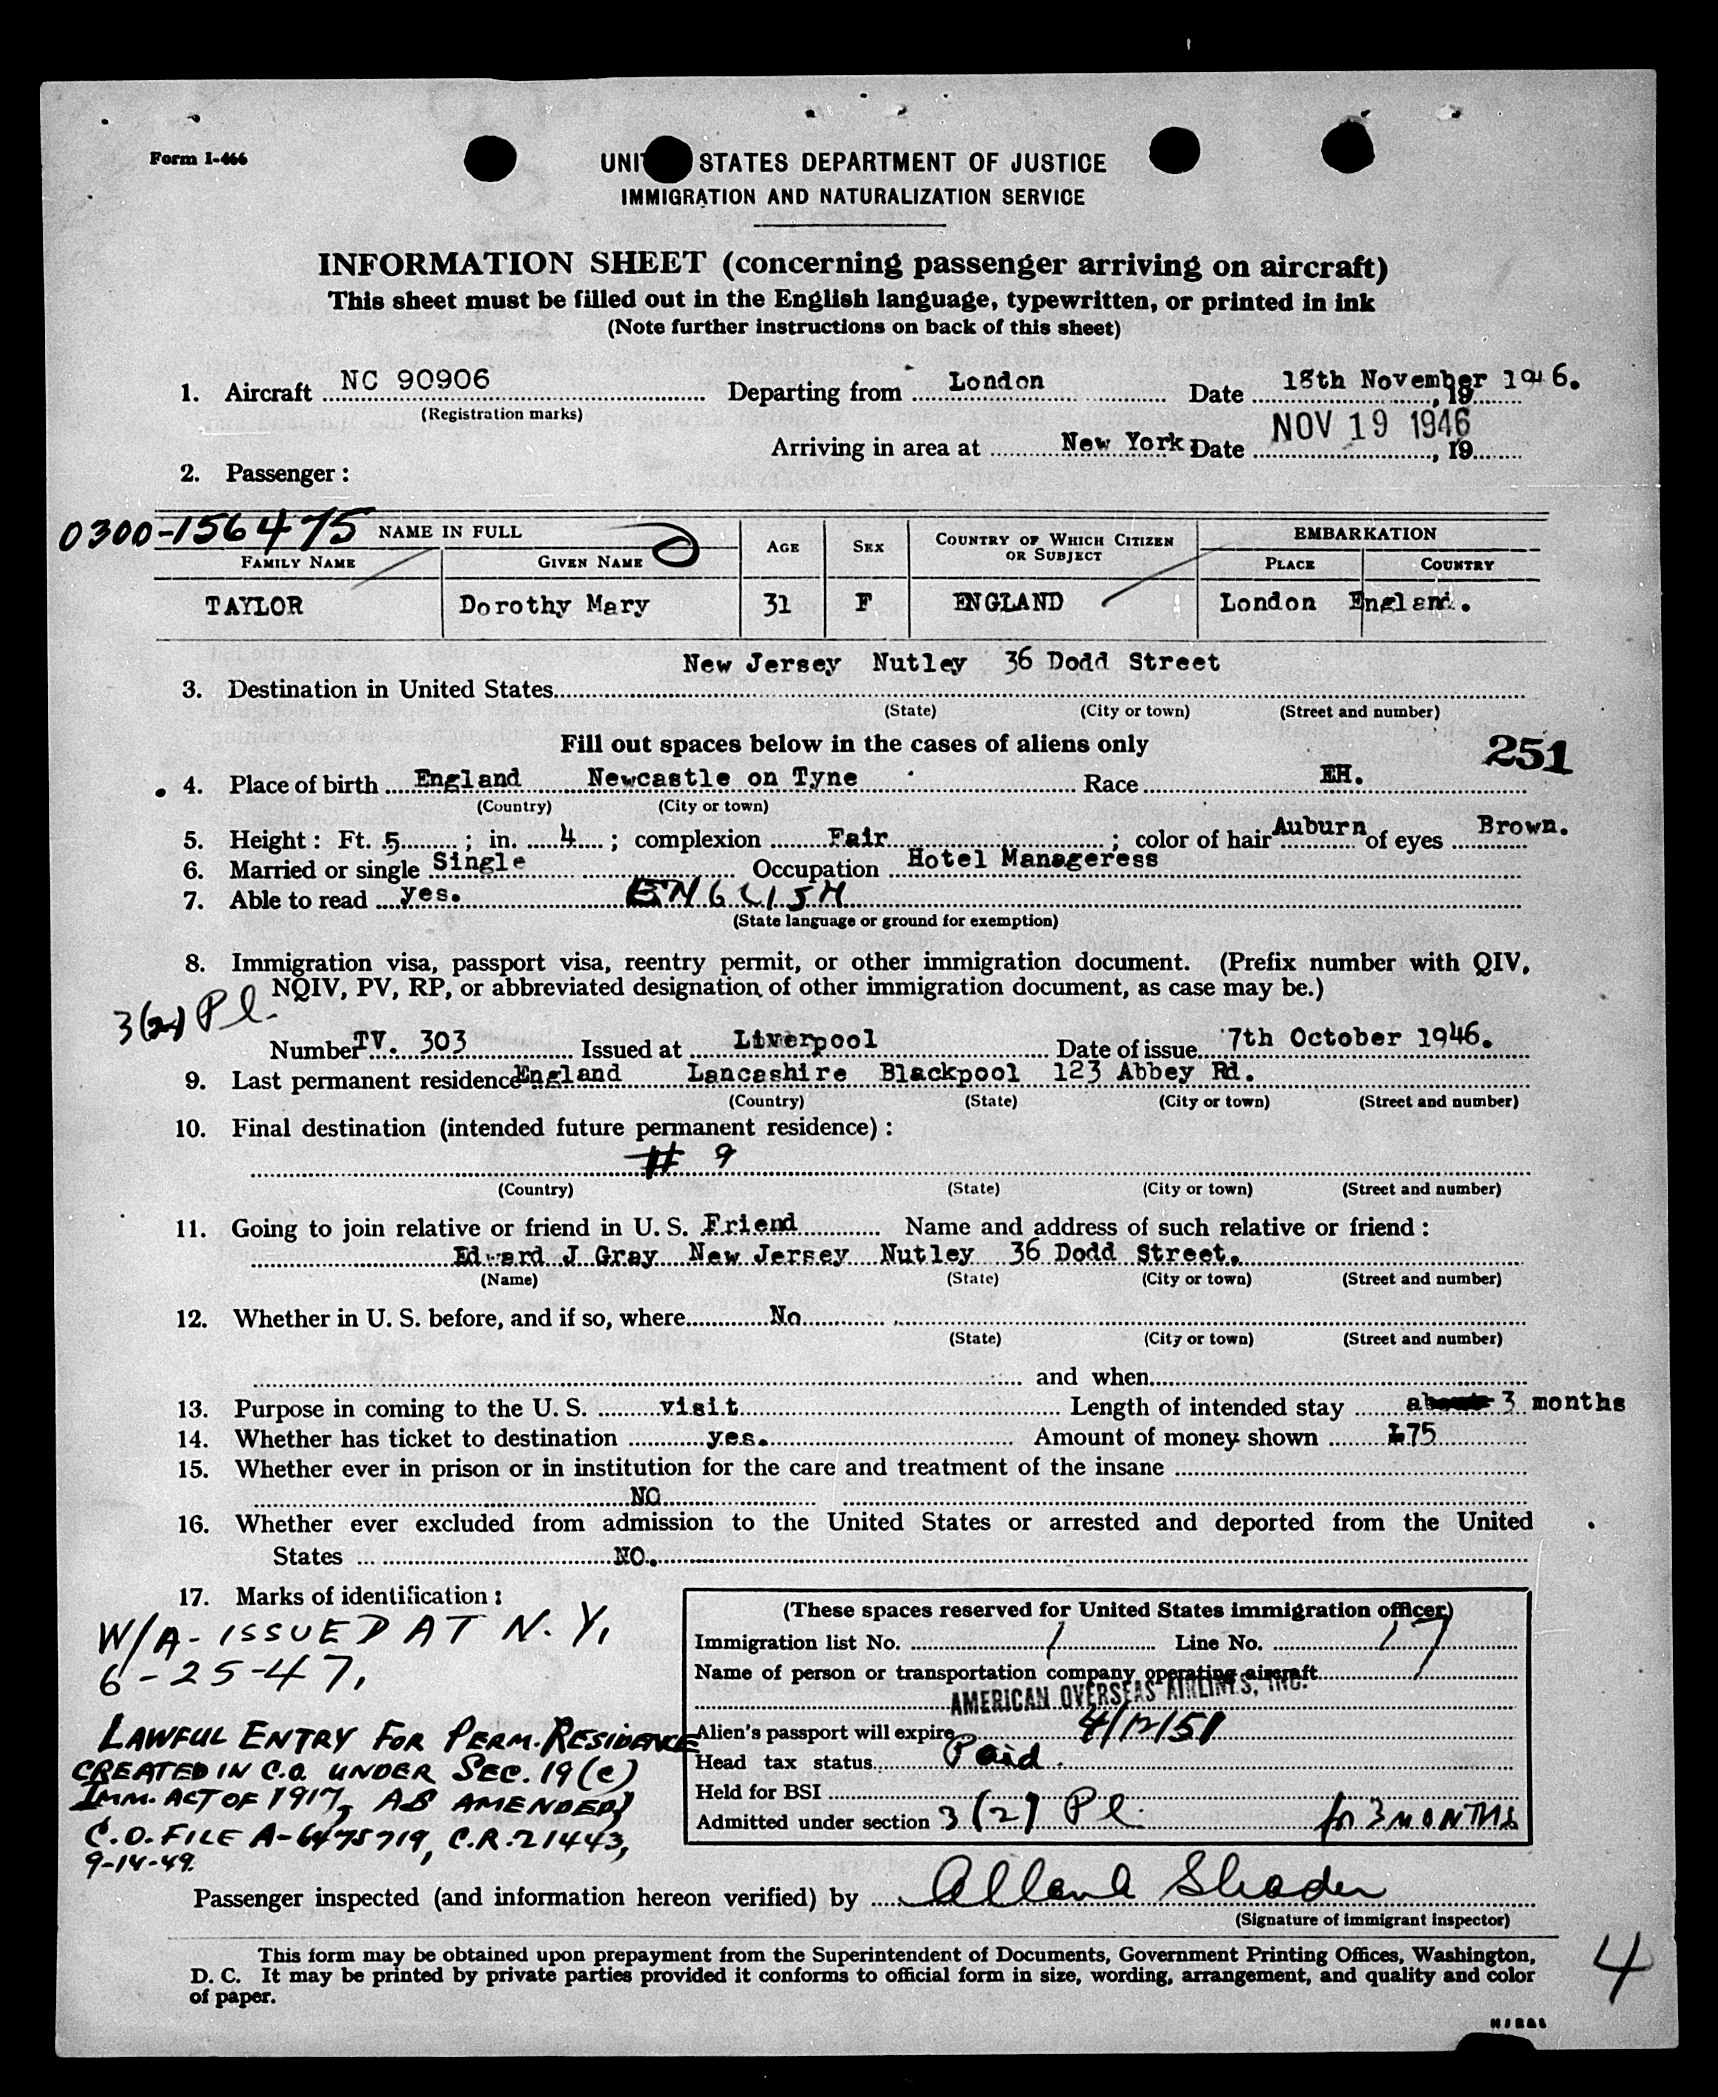 Form I-466
UNI STATES DEPARTMENT OF JUSTICE
IMMIGRATION AND NATURALIZATION SERVICE
INFORMATION SHEET (concerning passenger arriving on aircraft)
This sheet must be filled out in the English language, typewritten, or printed in ink
(Note further instructions on back of this sheet)
1. Aircraft NC 90906 Departing from London Date 18th November 1946.
(Registration marks)
Arriving in area at New York Date NOV 19 1946, 19
2. Passenger:
0300-156475 NAME IN FULL AGE SEX COUNTRY OF WHICH CITIZEN OR SUBJECT EMBARKATION
FAMILY NAME GIVEN NAME PLACE COUNTRY
TAYLOR Dorothy Mary 31 F ENGLAND London England.
New Jersey Nutley 36 Dodd Street
3. Destination in United States
(State) (City or town) (Street and number)
Fill out spaces below in the cases of aliens only
251
4. Place of birth England Newcastle on Tyne Race EH.
(Country) (City or town)
5. Height: Ft. 5 ; in. 4 ; complexion Fair ; color of hair Auburn of eyes Brown.
6. Married or single Single Occupation Hotel Manageress
7. Able to read yes. ENGLISH
(State language or ground for exemption)
8. Immigration visa, passport visa, reentry permit, or other immigration document. (Prefix number with QIV,
NQIV, PV, RP, or abbreviated designation of other immigration document, as case may be.)
3(2) Pl.
Number TV. 303 Issued at Liverpool Date of issue 7th October 1946.
9. Last permanent residence England Lancashire Blackpool 123 Abbey Rd.
(Country) (State) (City or town) (Street and number)
10. Final destination (intended future permanent residence):
# 9
(Country) (State) (City or town) (Street and number)
11. Going to join relative or friend in U. S. Friend Name and address of such relative or friend:
Edward J Gray New Jersey Nutley 36 Dodd Street.
(Name) (State) (City or town) (Street and number)
12. Whether in U. S. before, and if so, where No
(State) (City or town) (Street and number)
and when
13. Purpose in coming to the U. S. visit Length of intended stay 3 months
14. Whether has ticket to destination yes. Amount of money shown £75
15. Whether ever in prison or in institution for the care and treatment of the insane
NO
16. Whether ever excluded from admission to the United States or arrested and deported from the United
States NO.
17. Marks of identification:
W/A - ISSUED AT N.Y.
6-25-47.
LAWFUL ENTRY FOR PERM. RESIDENCE
CREATED IN C.O. UNDER SEC. 19(c)
IMM. ACT OF 1917, AS AMENDED)
C.O. FILE A-6475719, C.R. 21443,
9-14-49.
(These spaces reserved for United States immigration officer)
Immigration list No. 1 Line No. 17
Name of person or transportation company operating aircraft
AMERICAN OVERSEAS AIRLINES, INC.
Alien's passport will expire 4/12/51
Head tax status Paid.
Held for BSI
Admitted under section 3 (2) Pl. for 3 MONTHS
Passenger inspected (and information hereon verified) by
(Signature of immigrant inspector)
This form may be obtained upon prepayment from the Superintendent of Documents, Government Printing Offices, Washington,
D. C. It may be printed by private parties provided it conforms to official form in size, wording, arrangement, and quality and color
of paper.
4